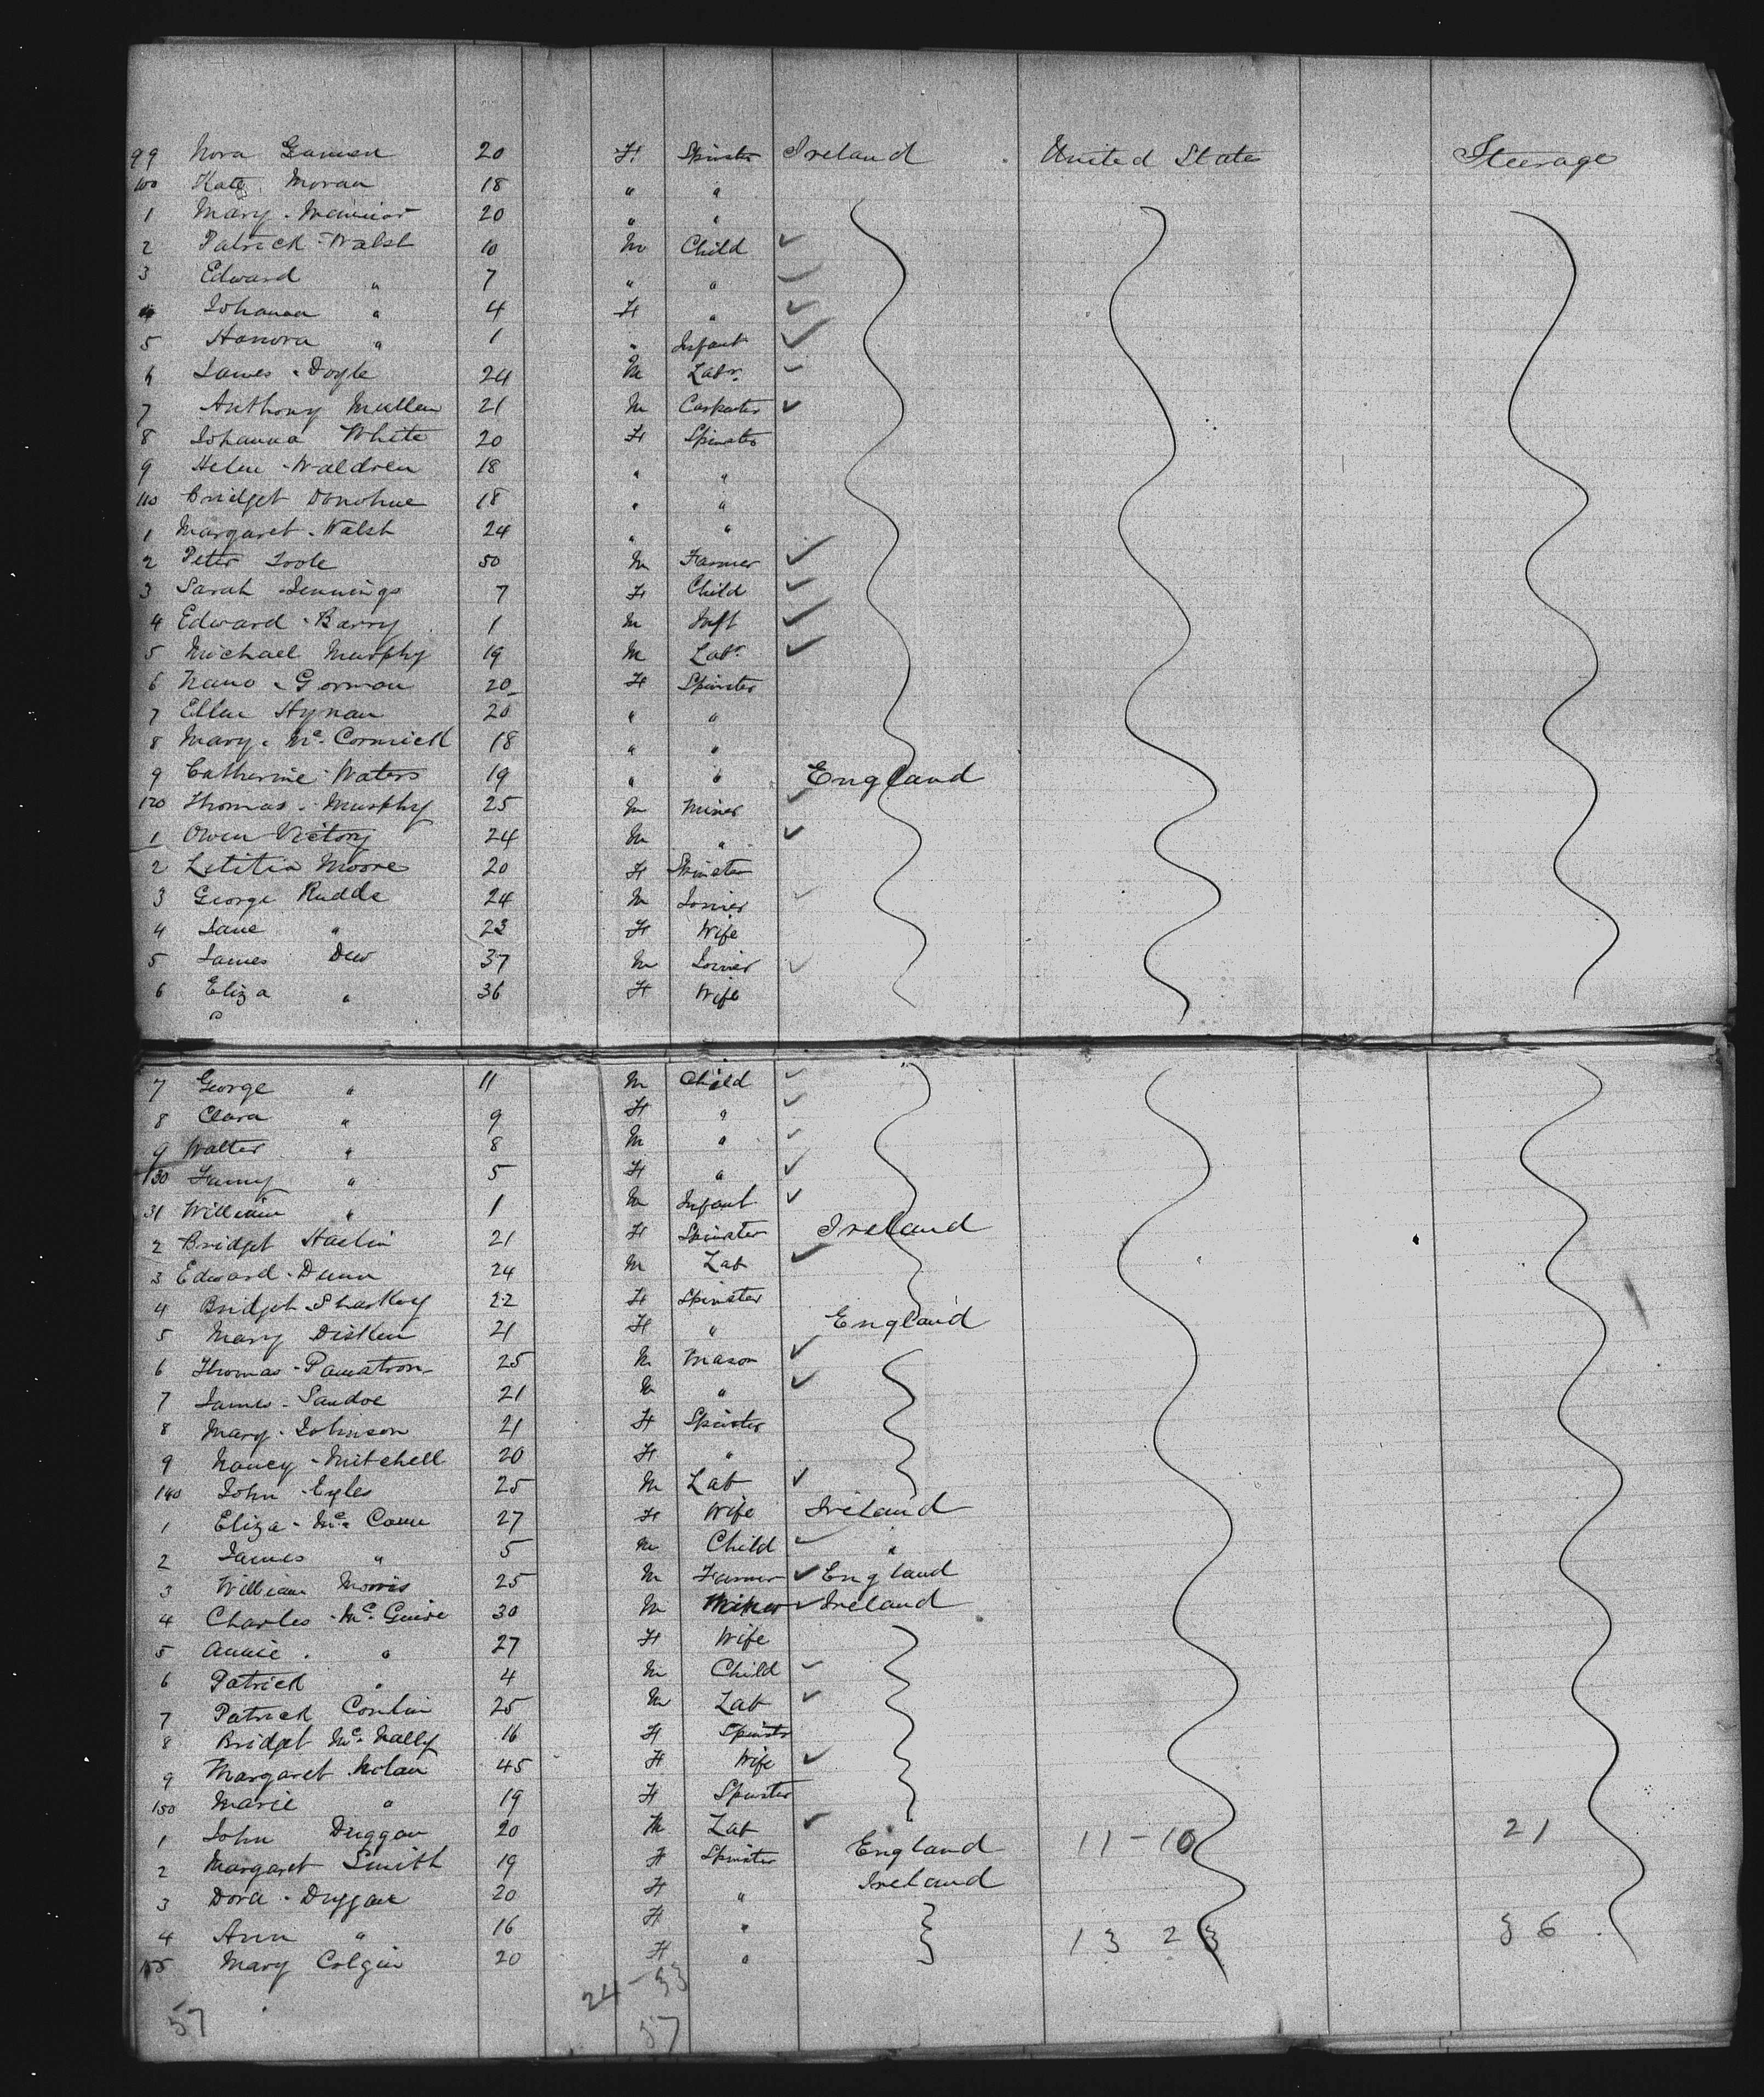 99 Nora 20 F Spinster Ireland United States Steerage
100 Kate Moran 18 " "
1 Mary 20 " "
2 Patrick Walsh 10 M Child ✓
3 Edward " 7 " " ✓
4 Johanna " 4 F " ✓
5 Honora " 1 " Infant ✓
6 James Doyle 24 M Labr. ✓
7 Anthony Mullen 21 M Carpenter ✓
8 Johanna White 20 F Spinster
9 Helen Waldren 18 " "
110 Bridget Donohue 18 " "
1 Margaret Walsh 24 " "
2 Peter Toole 50 M Farmer ✓
3 Sarah Jennings 7 F Child ✓
4 Edward Barry 1 M Inft ✓
5 Michael Murphy 19 M Labr ✓
6 Nano Gorman 20 F Spinster
7 Ellen Hynan 20 " "
8 Mary McCormick 18 " "
9 Catherine Waters 19 " " England
120 Thomas Murphy 25 M Miner ✓
1 Owen Victory 24 M " ✓
2 Letitia Moore 20 F Spinster
3 George Rudde 24 M Joiner ✓
4 Jane " 23 F Wife
5 James Dew 37 M Joiner ✓
6 Eliza " 36 F Wife
7 George " 11 M Child ✓
8 Clara " 9 F " ✓
9 Walter " 8 M " ✓
130 Fanny " 5 F " ✓
31 William " 1 M Infant ✓
2 Bridget 21 F Spinster Ireland
3 Edward Dunn 24 M Lab ✓
4 Bridget Sharkey 22 F Spinster
5 Mary Disken 21 F " England
6 Thomas 25 M Mason ✓
7 James Sandoe 21 M " ✓
8 Mary Johnson 21 F Spinster
9 Nancy Mitchell 20 F "
140 John Eyles 25 M Lab ✓
1 Eliza Mc 27 F Wife Ireland
2 James " 5 M Child ✓ "
3 William Morris 25 M Farmer ✓ England
4 Charles McGuire 30 M Miner ✓ Ireland
5 Annie " 27 F Wife
6 Patrick " 4 M Child ✓
7 Patrick Conlin 25 M Lab ✓
8 Bridget McNally 16 F Spinster
9 Margaret Nolan 45 F Wife ✓
150 Marie " 19 F Spinster
1 John Duggan 20 M Lab ✓
2 Margaret Smith 19 F Spinster England 11-10 21
3 Dora Duggan 20 F " Ireland
4 Ann " 16 F " 13 23 36
155 Mary Colgin 20 F "
24-33
57 57